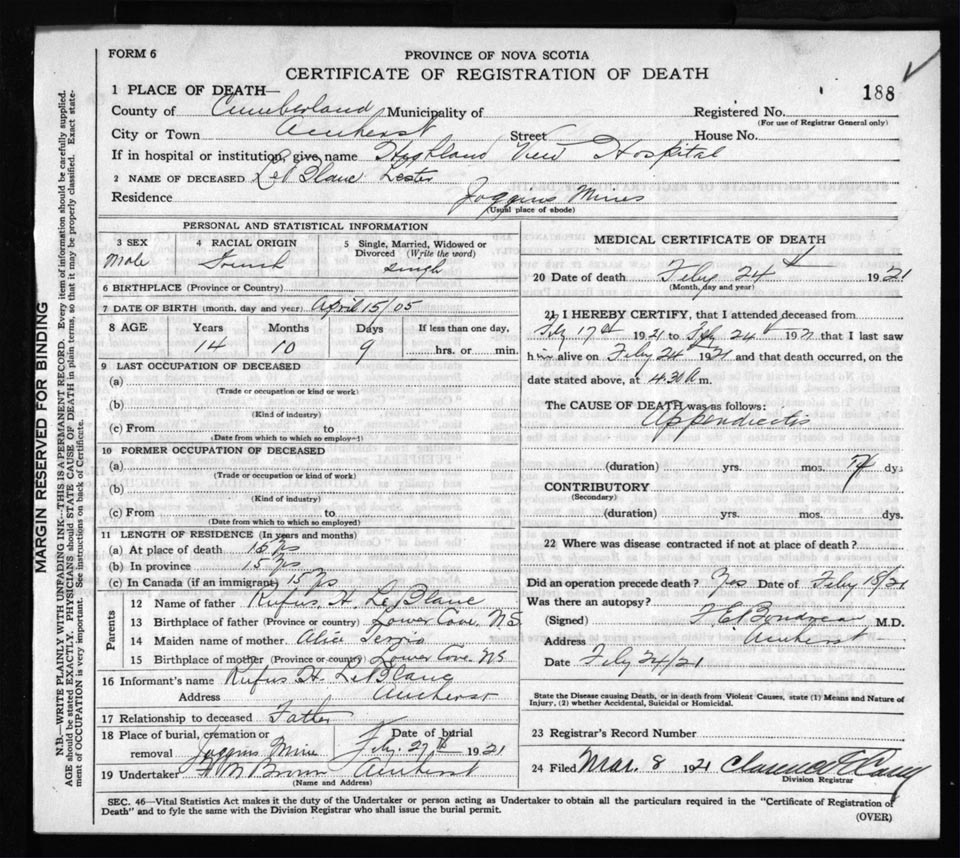 FORM 6
PROVINCE OF NOVA SCOTIA
CERTIFICATE OF REGISTRATION OF DEATH
188
1 PLACE OF DEATH—
County of Cumberland Municipality of
Registered No.
(For use of Registrar General only)
City or Town Amherst Street House No.
If in hospital or institution, give name Highland View Hospital
2 NAME OF DECEASED LeBlanc Lester
Residence Joggins Mines
(Usual place of abode)
PERSONAL AND STATISTICAL INFORMATION
3 SEX
Male
4 RACIAL ORIGIN
French
5 Single, Married, Widowed or Divorced (Write the word)
single
6 BIRTHPLACE (Province or Country)
7 DATE OF BIRTH (month, day and year) April 15/05
8 AGE Years Months Days If less than one day,
14 10 9 hrs. or min.
9 LAST OCCUPATION OF DECEASED
(a)
(Trade or occupation or kind or work)
(b)
(Kind of industry)
(c) From to
(Date from which to which so employed)
10 FORMER OCCUPATION OF DECEASED
(a)
(Trade or occupation or kind of work)
(b)
(Kind of industry)
(c) From to
(Date from which to which so employed)
11 LENGTH OF RESIDENCE (In years and months)
(a) At place of death 15 Yrs
(b) In province 15 Yrs
(c) In Canada (if an immigrant) 15 Yrs
Parents
12 Name of father Rufus H. LeBlanc
13 Birthplace of father (Province or country) Lower Cove. N.S.
14 Maiden name of mother Alice
15 Birthplace of mother (Province or country) Lower Cove. NS
16 Informant's name Rufus H. LeBlanc
Address Amherst
17 Relationship to deceased Father
18 Place of burial, cremation or removal Joggins Mine
Date of burial
Feby. 27th 1921
19 Undertaker Brown Amherst
(Name and Address)
MEDICAL CERTIFICATE OF DEATH
20 Date of death Feby 24 1921
(Month, day and year)
21 I HEREBY CERTIFY, that I attended deceased from
Feby 17th 1921 to Feby 24 1921 that I last saw
him alive on Feby 24 1921 and that death occurred, on the
date stated above, at 4.30 A m.
The CAUSE OF DEATH was as follows:
Appendicitis
(duration) yrs. mos. dys
CONTRIBUTORY
(Secondary)
(duration) yrs. mos. dys.
22 Where was disease contracted if not at place of death?
Did an operation precede death? Yes Date of Feby 18/21
Was there an autopsy?
(Signed) M.D.
Address Amherst
Date Feby 24/21
State the Disease causing Death, or in death from Violent Causes, state (1) Means and Nature of
Injury, (2) whether Accidental, Suicidal or Homicidal.
23 Registrar's Record Number
24 Filed Mar. 8 1921 Clarence
Division Registrar
SEC. 46—Vital Statistics Act makes it the duty of the Undertaker or person acting as Undertaker to obtain all the particulars required in the "Certificate of Registration of
Death" and to fyle the same with the Division Registrar who shall issue the burial permit.
(OVER)
MARGIN RESERVED FOR BINDING
N.B.—WRITE PLAINLY WITH UNFADING INK—THIS IS A PERMANENT RECORD. Every item of information should be carefully supplied.
AGE should be stated EXACTLY. PHYSICIANS should STATE CAUSE OF DEATH in plain terms, so that it may be properly classified. Exact state-
ment of OCCUPATION is very important. See instructions on back of Certificate.